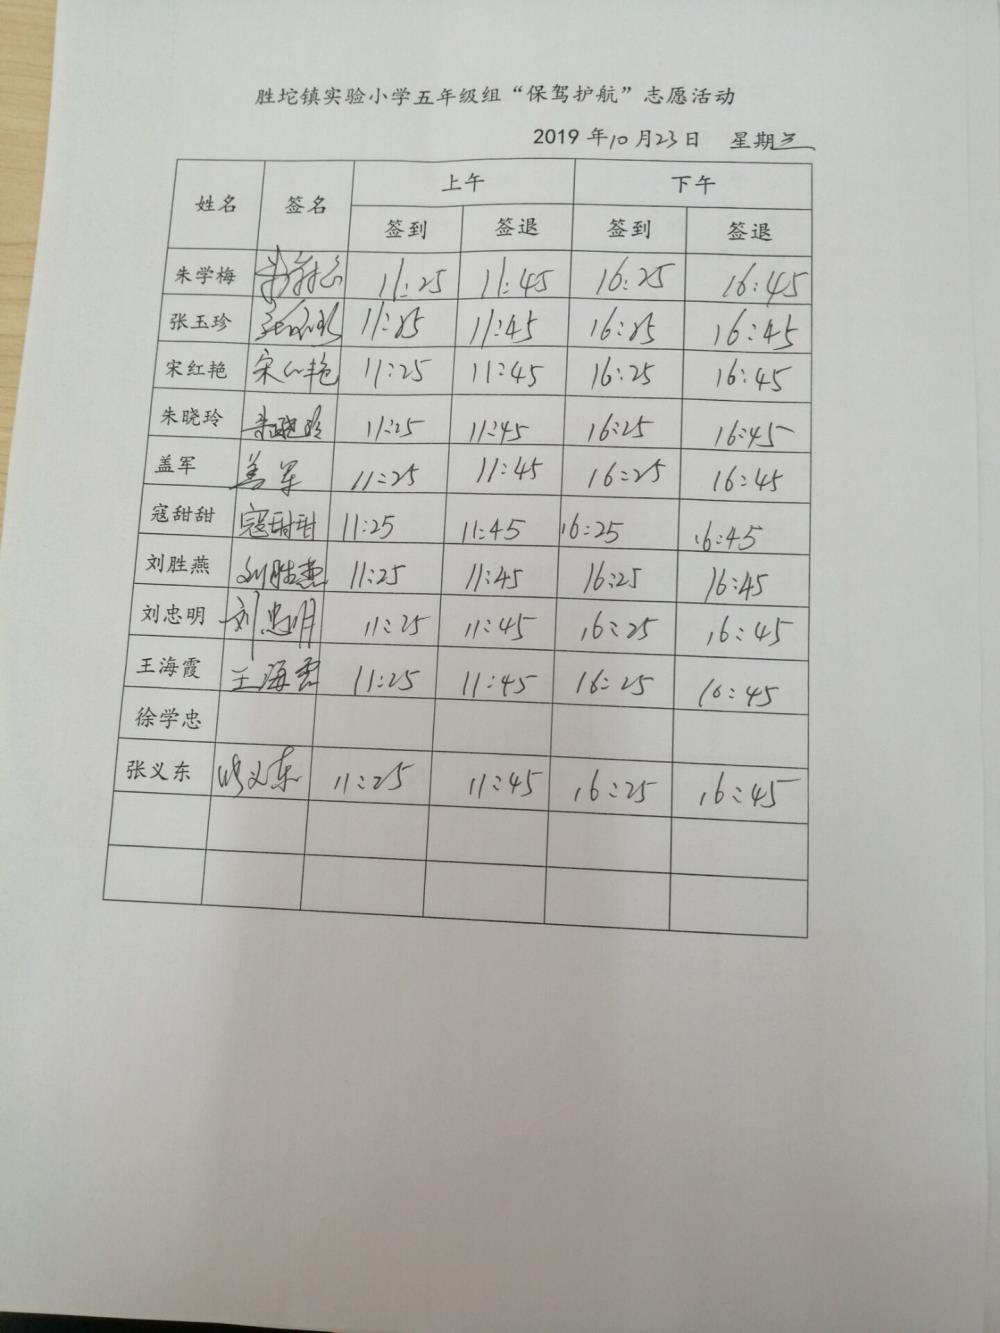 胜坨镇实验小学五年级组“保驾护航”志愿活动
2019 年10月23日 星期三
姓名 签名 上午 下午
签到 签退 签到 签退
朱学梅 11:25 11:45 16:25 16:45
张玉珍 张玉珍 11:25 11:45 16:25 16:45
宋红艳 宋红艳 11:25 11:45 16:25 16:45
朱晓玲 朱晓玲 11:25 11:45 16:25 16:45
盖军 盖军 11:25 11:45 16:25 16:45
寇甜甜 寇甜甜 11:25 11:45 16:25 16:45
刘胜燕 刘胜燕 11:25 11:45 16:25 16:45
刘忠明 刘忠明 11:25 11:45 16:25 16:45
王海霞 王海霞 11:25 11:45 16:25 16:45
徐学忠
张义东 张义东 11:25 11:45 16:25 16:45